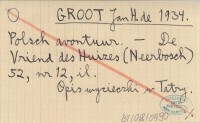 GROOT Jan H. de 1934.
Polsch avontuur. — De
Vriend des Huizes (Neerbosch)
52, nr 12, il.
Opis wycieczki w Tatry.